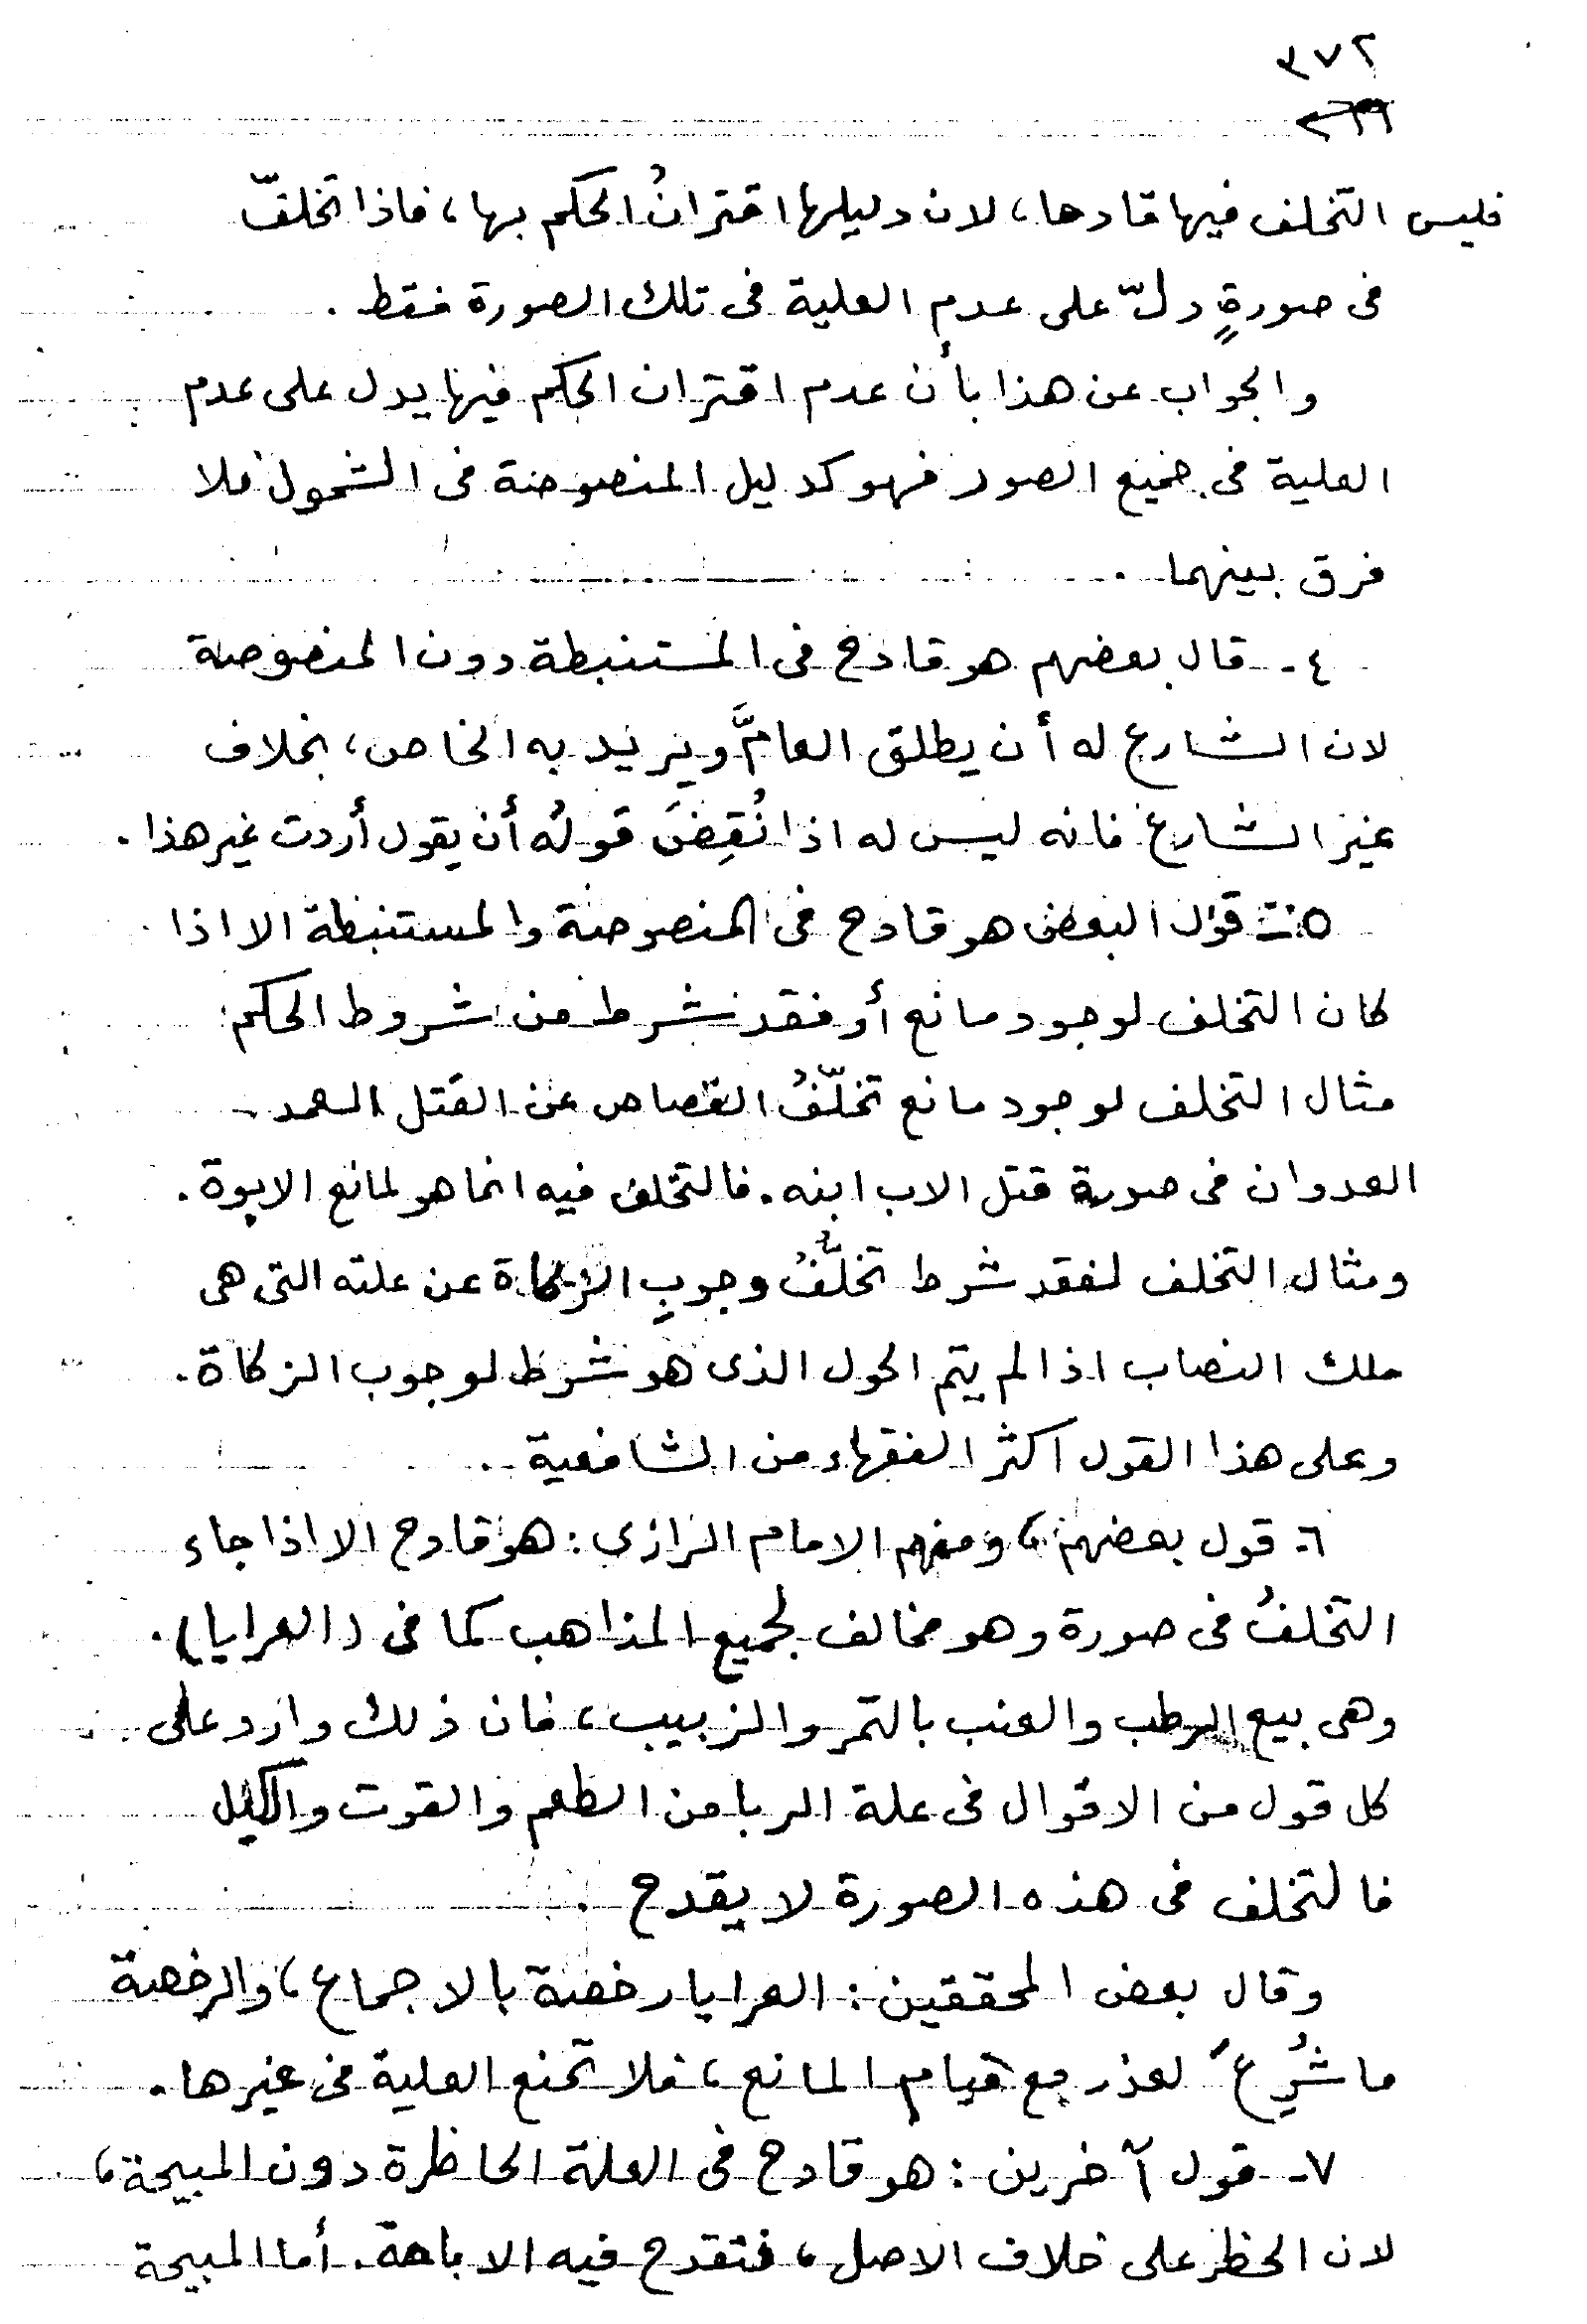 ٣٧٢
فليس التخلف فيها قادحا، لان دليلها اقترانُ الحكم بها، فاذا تخلفّ
فى صورةٍ دلّ على عدم العلية فى تلك الصورة فقط .
والجواب عن هذا بأن عدم اقتران الحكم فيها يدل على عدم
العلية فى جميع الصور فهو كدليل المنصوصة فى الشمول فلا
فرق بينهما .
٤- قال بعضهم هو قادح فى المستنبطة دون المنصوصة
لان الشارع له أن يطلق العامَّ ويريد به الخاص، بخلاف
غير الشارع فانه ليس له اذا نُقِضَ قولُه أن يقول أردت غير هذا .
٥- قول البعض هو قادح فى المنصوصة والمستنبطة الا اذا
كان التخلف لوجود مانع أو فقد شرط من شروط الحكم
مثال التخلف لوجود مانع تخلّفُ القصاص عن القتل العمد
العدوان فى صورة قتل الاب ابنه. فالتخلف فيه انما هو لمانع الابوة .
ومثال التخلف لفقد شرط تخلّفُ وجوبِ الزكاة عن علته التى هى
ملك النصاب اذا لم يتم الحول الذى هو شرط لوجوب الزكاة .
وعلى هذا القول اكثر الفقهاء من الشافعية .
٦- قول بعضهم، ومنهم الامام الرازى : هو قادح الا اذا جاء
التخلفُ فى صورة وهو مخالف لجميع المذاهب كما فى (العرايا) .
وهى بيع الرطب والعنب بالتمر والزبيب، فان ذلك وارد على
كل قول من الاقوال فى علة الربا من الطعم والقوت والكيل
فالتخلف فى هذه الصورة لا يقدح .
وقال بعض المحققين : العرايا رخصة بالاجماع، والرخصة
ما شُرِعَ لعذر مع قيام المانع، فلا تمنع العلية فى غيرها .
٧- قول آخرين : هو قادح فى العلة الحاظرة دون المبيحة،
لان الحظر على خلاف الاصل، فتقدح فيه الاباحة. أما المبيحة